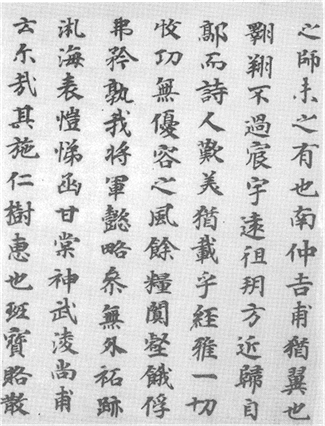 之師未之有也南仲吉甫猶翼也
翱翔不過宸宇遠徂朔方近歸自
鄗而詩人歎美猶載乎經雅一切
校功無優容之風餘糧闕壑餓俘
弗矜孰我將軍懿略參無外祏跡
海表愷悌函甘棠神武淩尚甫
云尓哉其施仁樹惠也班寶賂散